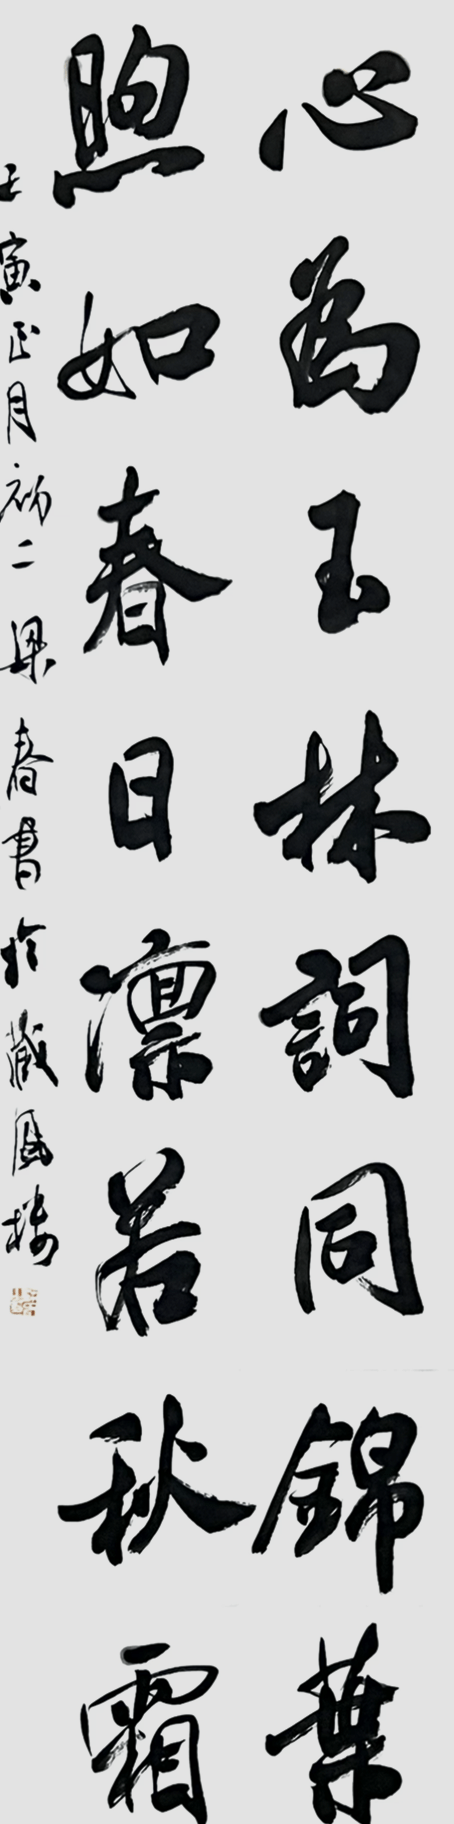 心為玉林詞同錦葉
煦如春日凛若秋霜
壬寅正月初二梁春書於藏鳳樓